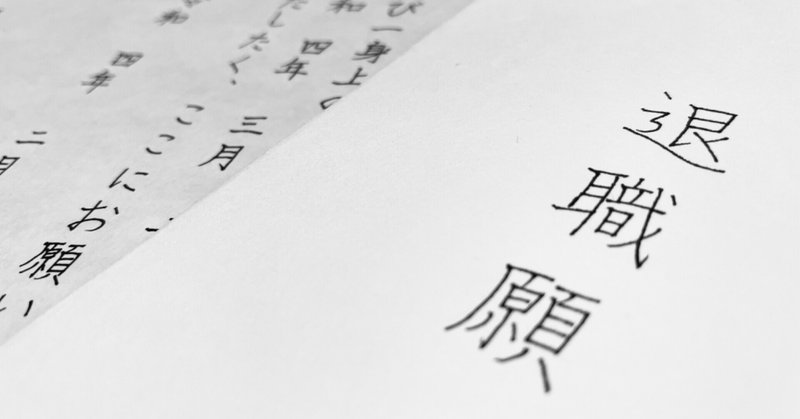 退職願
び一身上の
和 四年 三月
たしたく、ここにお願い
和 四年 二月